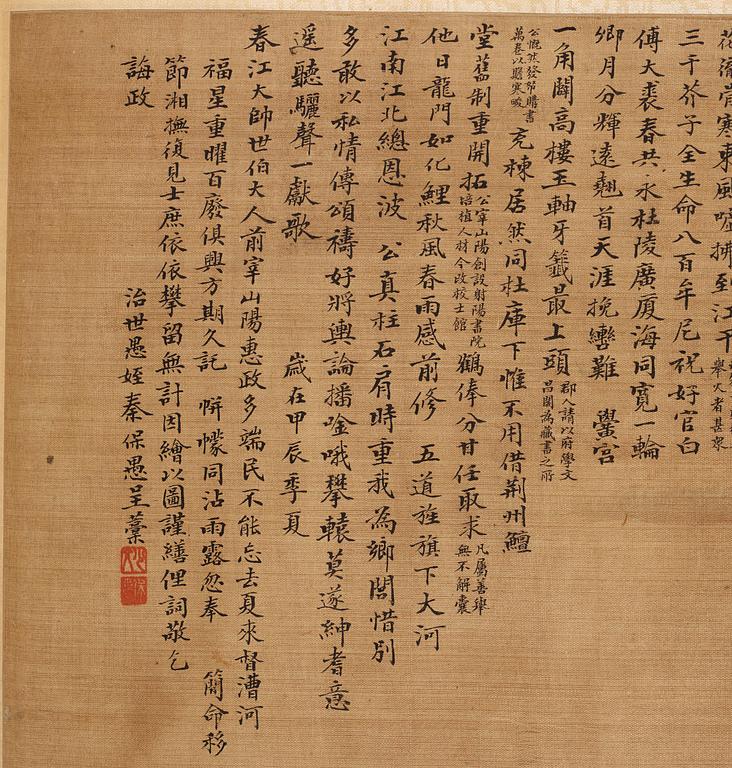 寒東風噓拂到江干舉火者甚衆
三千芥子全生命八百牟尼祝好官白
傅大裘春共永杜陵廣廈海同寬一輪
卿月分輝遠翹首天涯挽轡難 黌宮
一角闢高樓玉軸牙籤最上頭郡人請以府學文昌閣為藏書之所
公慨然發帑購書萬卷以贍寒畯充棟居然同杜庫下惟不用借荊州鱣
堂舊制重開拓公宰山陽創設射陽書院培植人材今改校士館鶴俸分甘任取求凡屬善舉無不解囊
他日龍門如化鯉秋風春雨感前修 五道旌旗下大河
江南江北總恩波 公真柱石肩時重我為鄉閭惜別
多敢以私情傳頌禱好將輿論播唫哦攀轅莫遂紳耆意
遥聽驪聲一獻歌 歲在甲辰季夏
春江大帥世伯大人前宰山陽惠政多端民不能忘去夏來督漕河
福星重曜百廢俱興方期久託 帡幪同沾雨露忽奉 簡命移
節湘撫復見士庶依依攀留無計因繪以圖謹繕俚詞敬乞
誨政 治世愚姪秦保愚呈藁